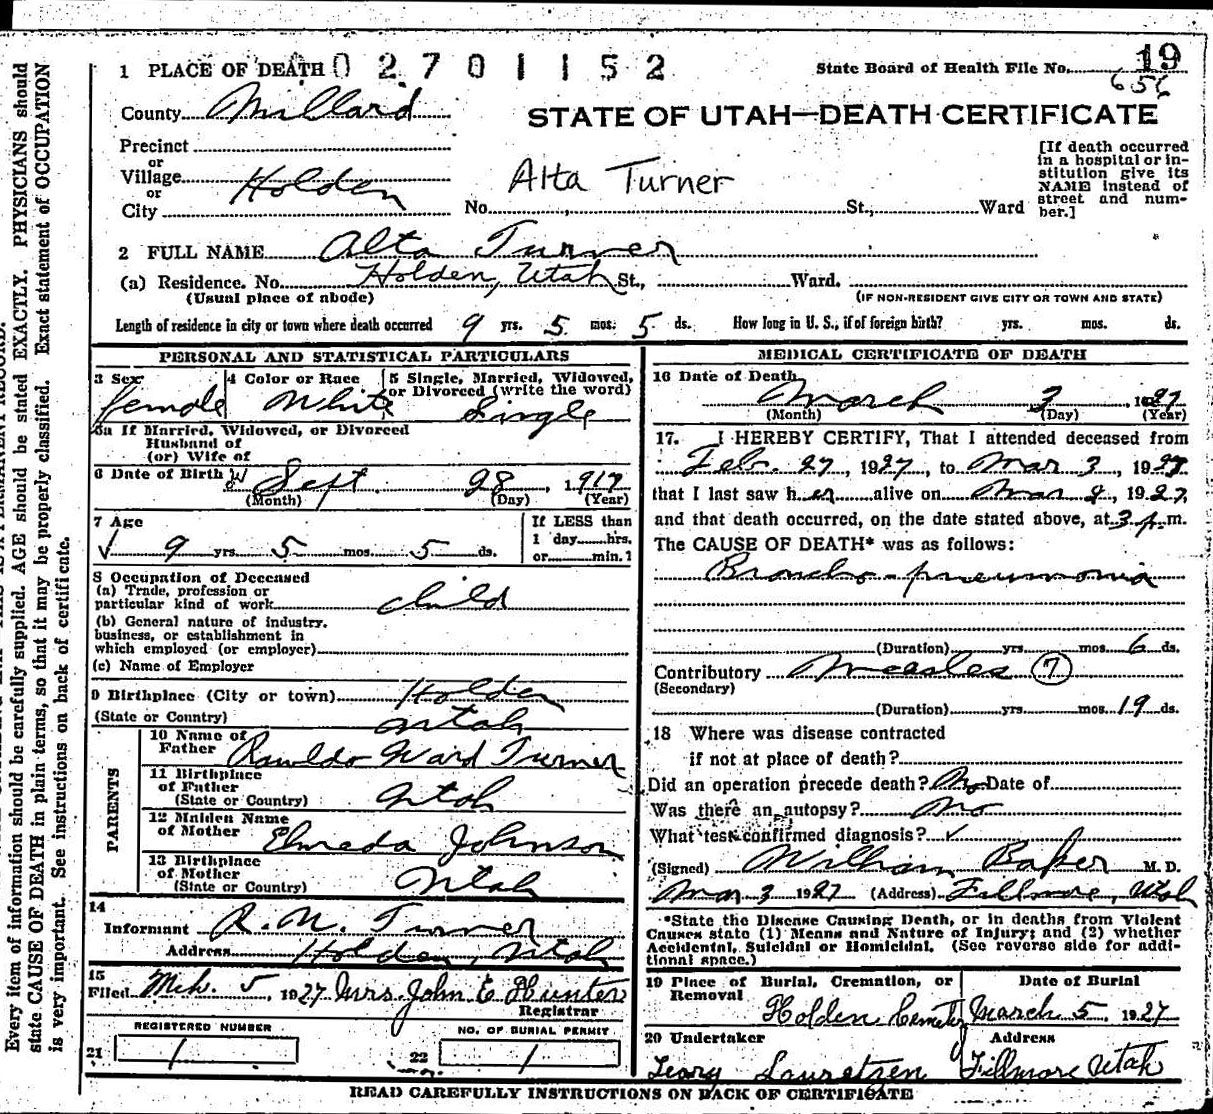 19
1 PLACE OF DEATH 0 2 7 0 1 1 5 2 State Board of Health File No. 656
County Millard
STATE OF UTAH—DEATH CERTIFICATE
Precinct
or
Village Holden
or
City No. St., Ward
Alta Turner
[If death occurred
in a hospital or in-
stitution give its
NAME instead of
street and num-
ber.]
2 FULL NAME Alta Turner
(a) Residence. No. Holden, Utah St., Ward.
(Usual place of abode) (IF NON-RESIDENT GIVE CITY OR TOWN AND STATE)
Length of residence in city or town where death occurred 9 yrs. 5 mos. 5 ds. How long in U. S., if of foreign birth? yrs. mos. ds.
PERSONAL AND STATISTICAL PARTICULARS
3 Sex 4 Color or Race 5 Single, Married, Widowed,
or Divorced (write the word)
female White Single
5a If Married, Widowed, or Divorced
Husband of
(or) Wife of
6 Date of Birth Sept. 28, 1917
(Month) (Day) (Year)
7 Age
9 yrs. 5 mos. 5 ds.
If LESS than
1 day hrs.
or min.?
8 Occupation of Deceased
(a) Trade, profession or
particular kind of work child
(b) General nature of industry,
business, or establishment in
which employed (or employer)
(c) Name of Employer
9 Birthplace (City or town) Holden
(State or Country) Utah
PARENTS
10 Name of
Father Ward Turner
11 Birthplace
of Father
(State or Country) Utah
12 Maiden Name
of Mother Elmeda Johnson
13 Birthplace
of Mother
(State or Country) Utah
14
Informant R. W. Turner
Address Holden, Utah
15
Filed Mch. 5, 1927 Mrs. John E Hunter
Registrar
REGISTERED NUMBER NO. OF BURIAL PERMIT
21 1 22 1
MEDICAL CERTIFICATE OF DEATH
16 Date of Death
March 3, 1927
(Month) (Day) (Year)
17. I HEREBY CERTIFY, That I attended deceased from
Feb. 27, 1927, to Mar 3, 1927
that I last saw her alive on Mar 2, 1927,
and that death occurred, on the date stated above, at 3 p.m.
The CAUSE OF DEATH* was as follows:
Broncho-pneumonia
(Duration) yrs. mos. 6 ds.
Contributory Measles 7
(Secondary)
(Duration) yrs. mos. 19 ds.
18 Where was disease contracted
if not at place of death?
Did an operation precede death? No Date of
Was there an autopsy? no
What test confirmed diagnosis? ✓
(Signed) William Baker M. D.
Mar 3 1927 (Address) Fillmore, Utah
*State the Disease Causing Death, or in deaths from Violent
Causes state (1) Means and Nature of Injury; and (2) whether
Accidental, Suicidal or Homicidal. (See reverse side for addi-
tional space.)
19 Place of Burial, Cremation, or Date of Burial
Removal
Holden Cemetery March 5, 1927
20 Undertaker Address
Lauretzen Fillmore Utah
READ CAREFULLY INSTRUCTIONS ON BACK OF CERTIFICATE
Every item of information should be carefully supplied. AGE should be stated EXACTLY. PHYSICIANS should
state CAUSE OF DEATH in plain terms, so that it may be properly classified. Exact statement of OCCUPATION
is very important. See instructions on back of certificate.